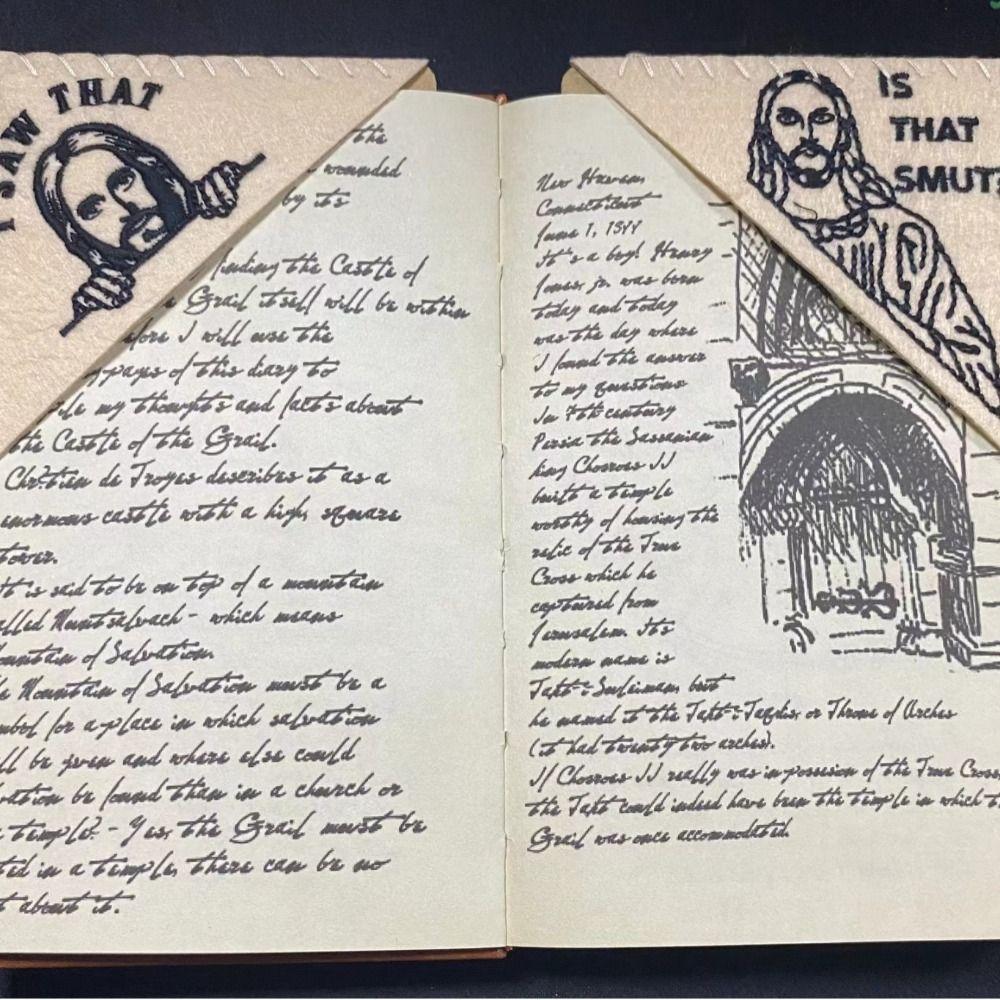 I SAW THAT
the
wounded
by its
finding the Castle of
Grail itself will be within
I will use the
pages of this diary to
my thoughts and facts about
the Castle of the Grail.
Chrétien de Troyes describes it as a
enormous castle with a high, square
tower.
It is said to be on top of a mountain
called Muntsalvach - which means
Mountain of Salvation.
Mountain of Salvation must be a
symbol for a place in which salvation
be given and where else could
salvation be found than in a church or
temple? - Yes, the Grail must be
in a temple, there can be no
about it.
IS
THAT
SMUT?
New Haven,
Connecticut
June 1, 1899
It's a boy! Henry
Jones jr. was born
today and today
was the day where
I found the answer
to my questions
In 7th century
Persia the Sassanian
king Chosroes II
built a temple
worthy of housing the
relic of the True
Cross which he
captured from
Jerusalem. It's
modern name is
Takt-i-Suleiman, but
he named it the Takt-i-Taqdis, or Throne of Arches
(it had twenty two arches).
If Chosroes II really was in possesion of the True Cross,
the Takt could indeed have been the temple in which
Grail was once accommodated.